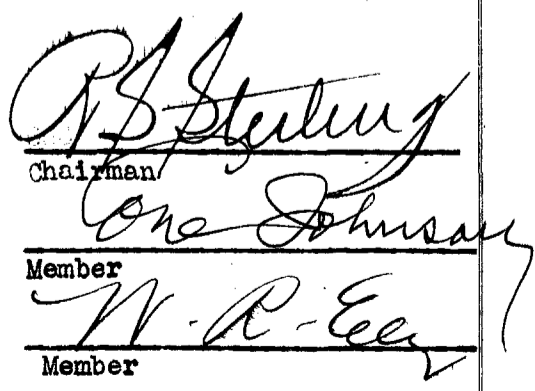 R S Sterling
Chairman
Cone Johnson
Member
W. R. Ely
Member